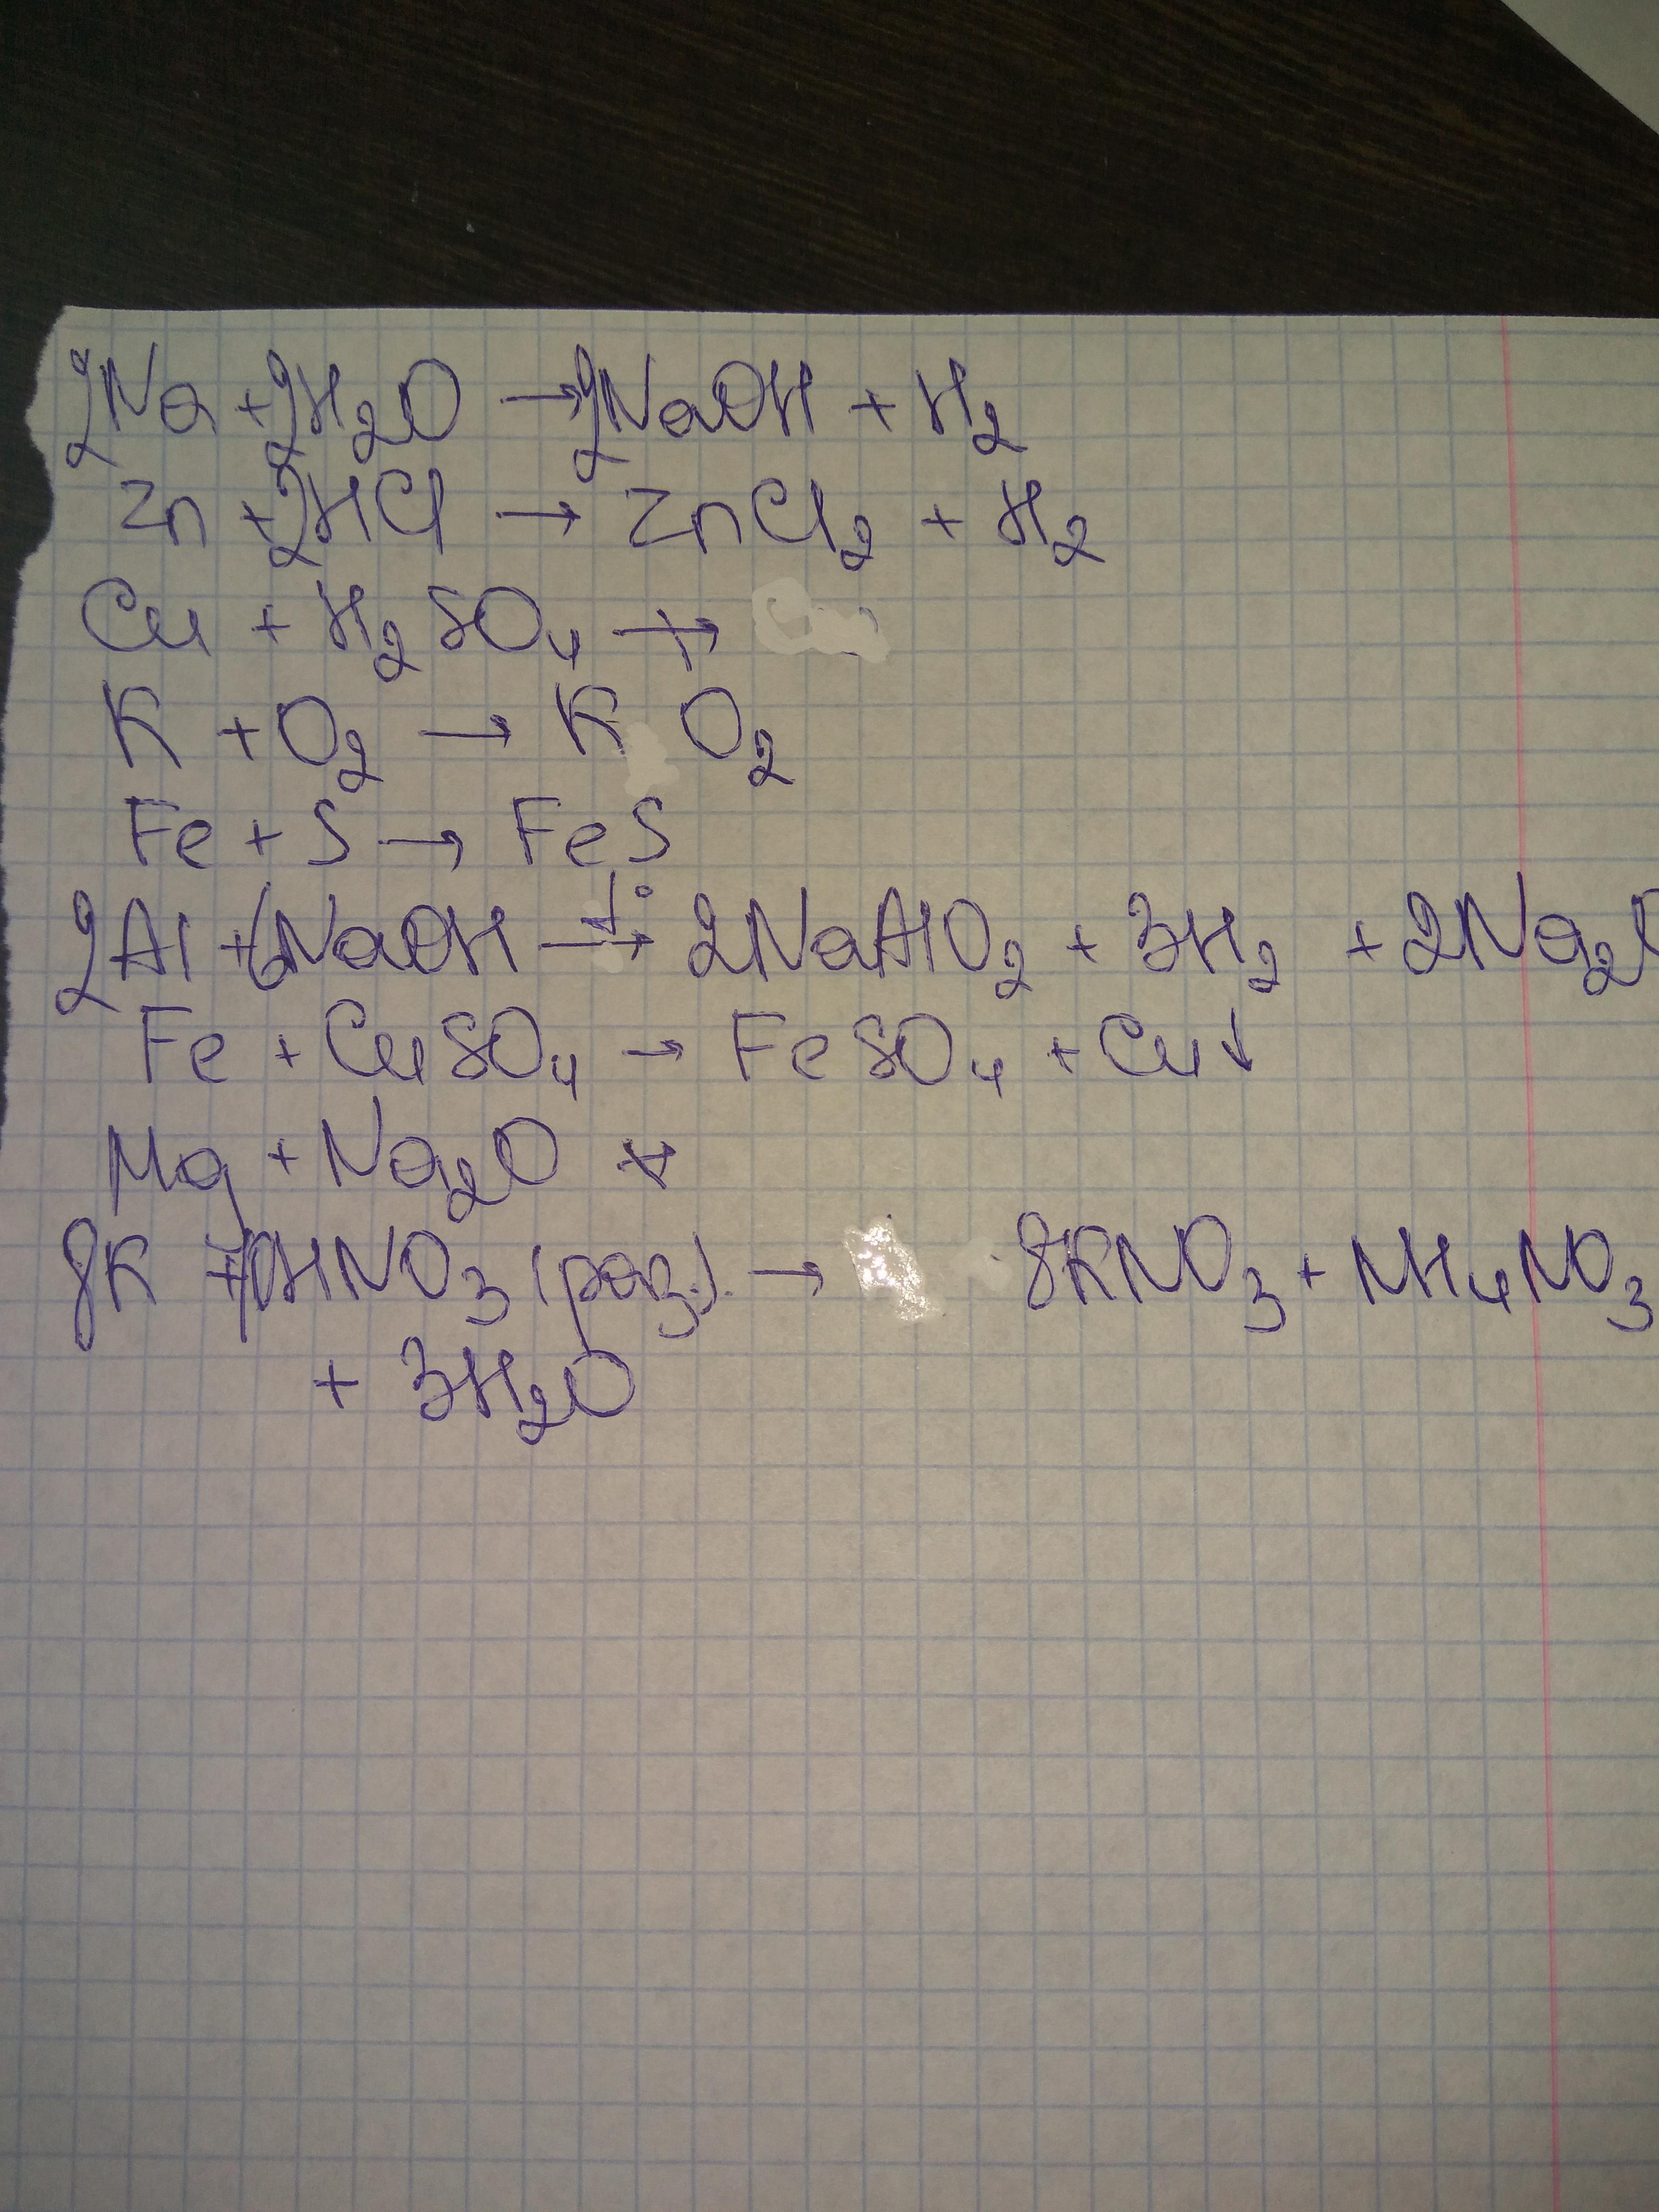 2Na + 2H₂O → 2NaOH + H₂
Zn + 2HCl → ZnCl₂ + H₂
Cu + H₂SO₄ ↛
K + O₂ → K O₂
Fe + S → FeS
2Al + 6NaOH –t°→ 2NaAlO₂ + 3H₂ + 2Na₂O
Fe + CuSO₄ → FeSO₄ + Cu↓
Mg + Na₂O ↛
8K + 10HNO₃ (раз.) → 8KNO₃ + NH₄NO₃
+ 3H₂O